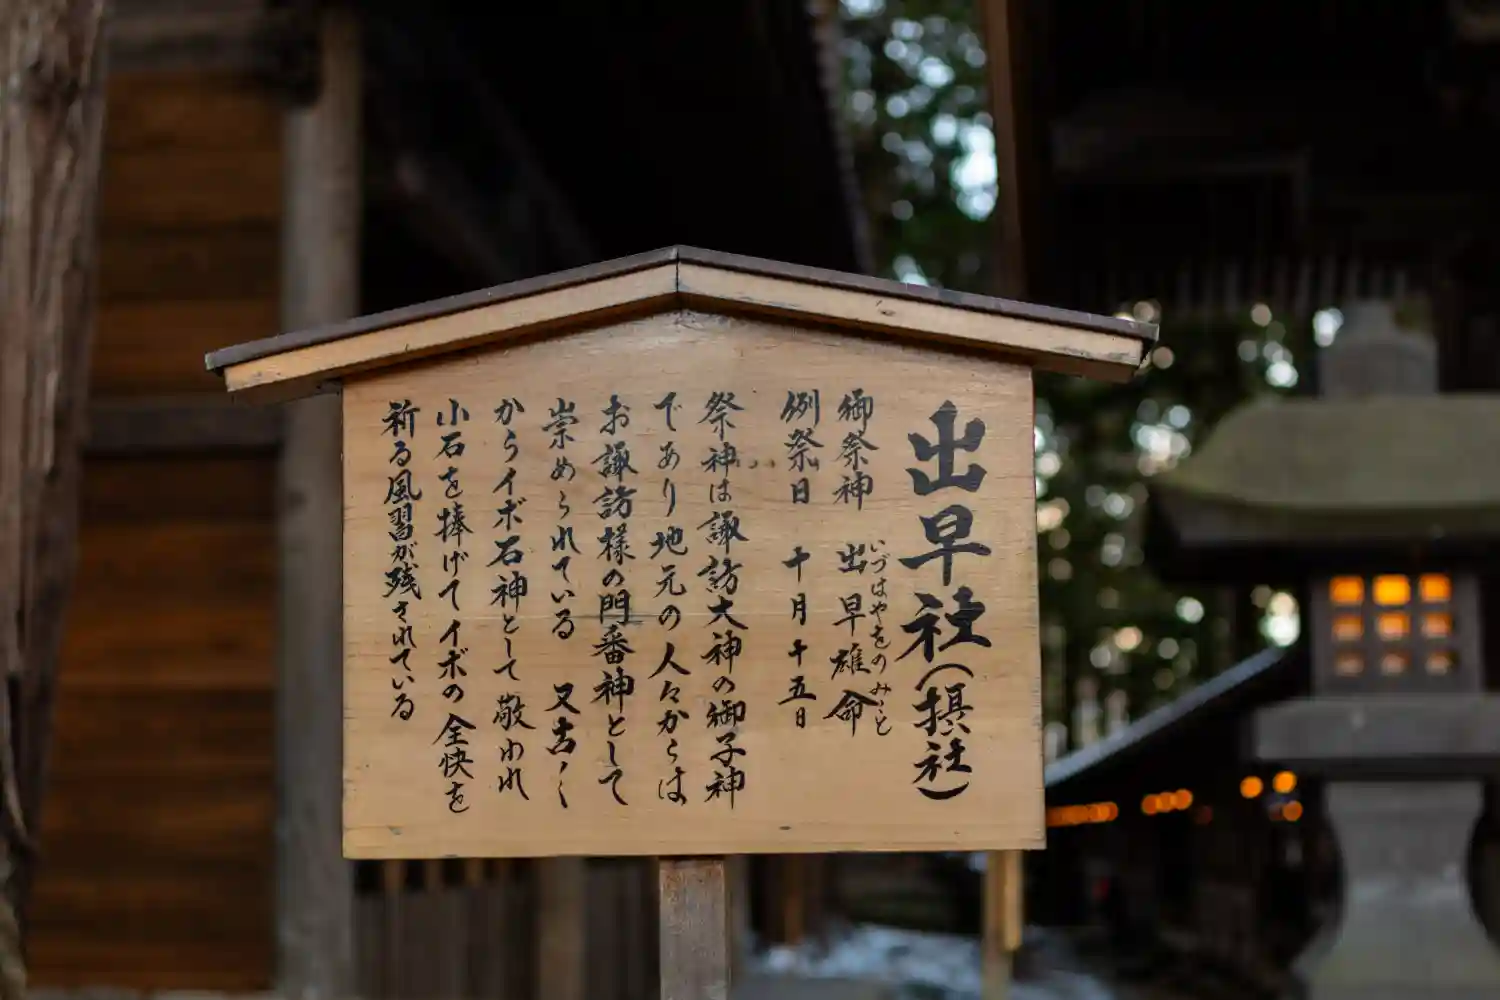 出早社(摂社)
御祭神 出早雄命
いづはやをのみこと
例祭日 十月十五日
祭神は諏訪大神の御子神
であり地元の人々からは
お諏訪様の門番神として
崇められている 又古く
からイボ石神として敬われ
小石を捧げてイボの全快を
祈る風習が残されている